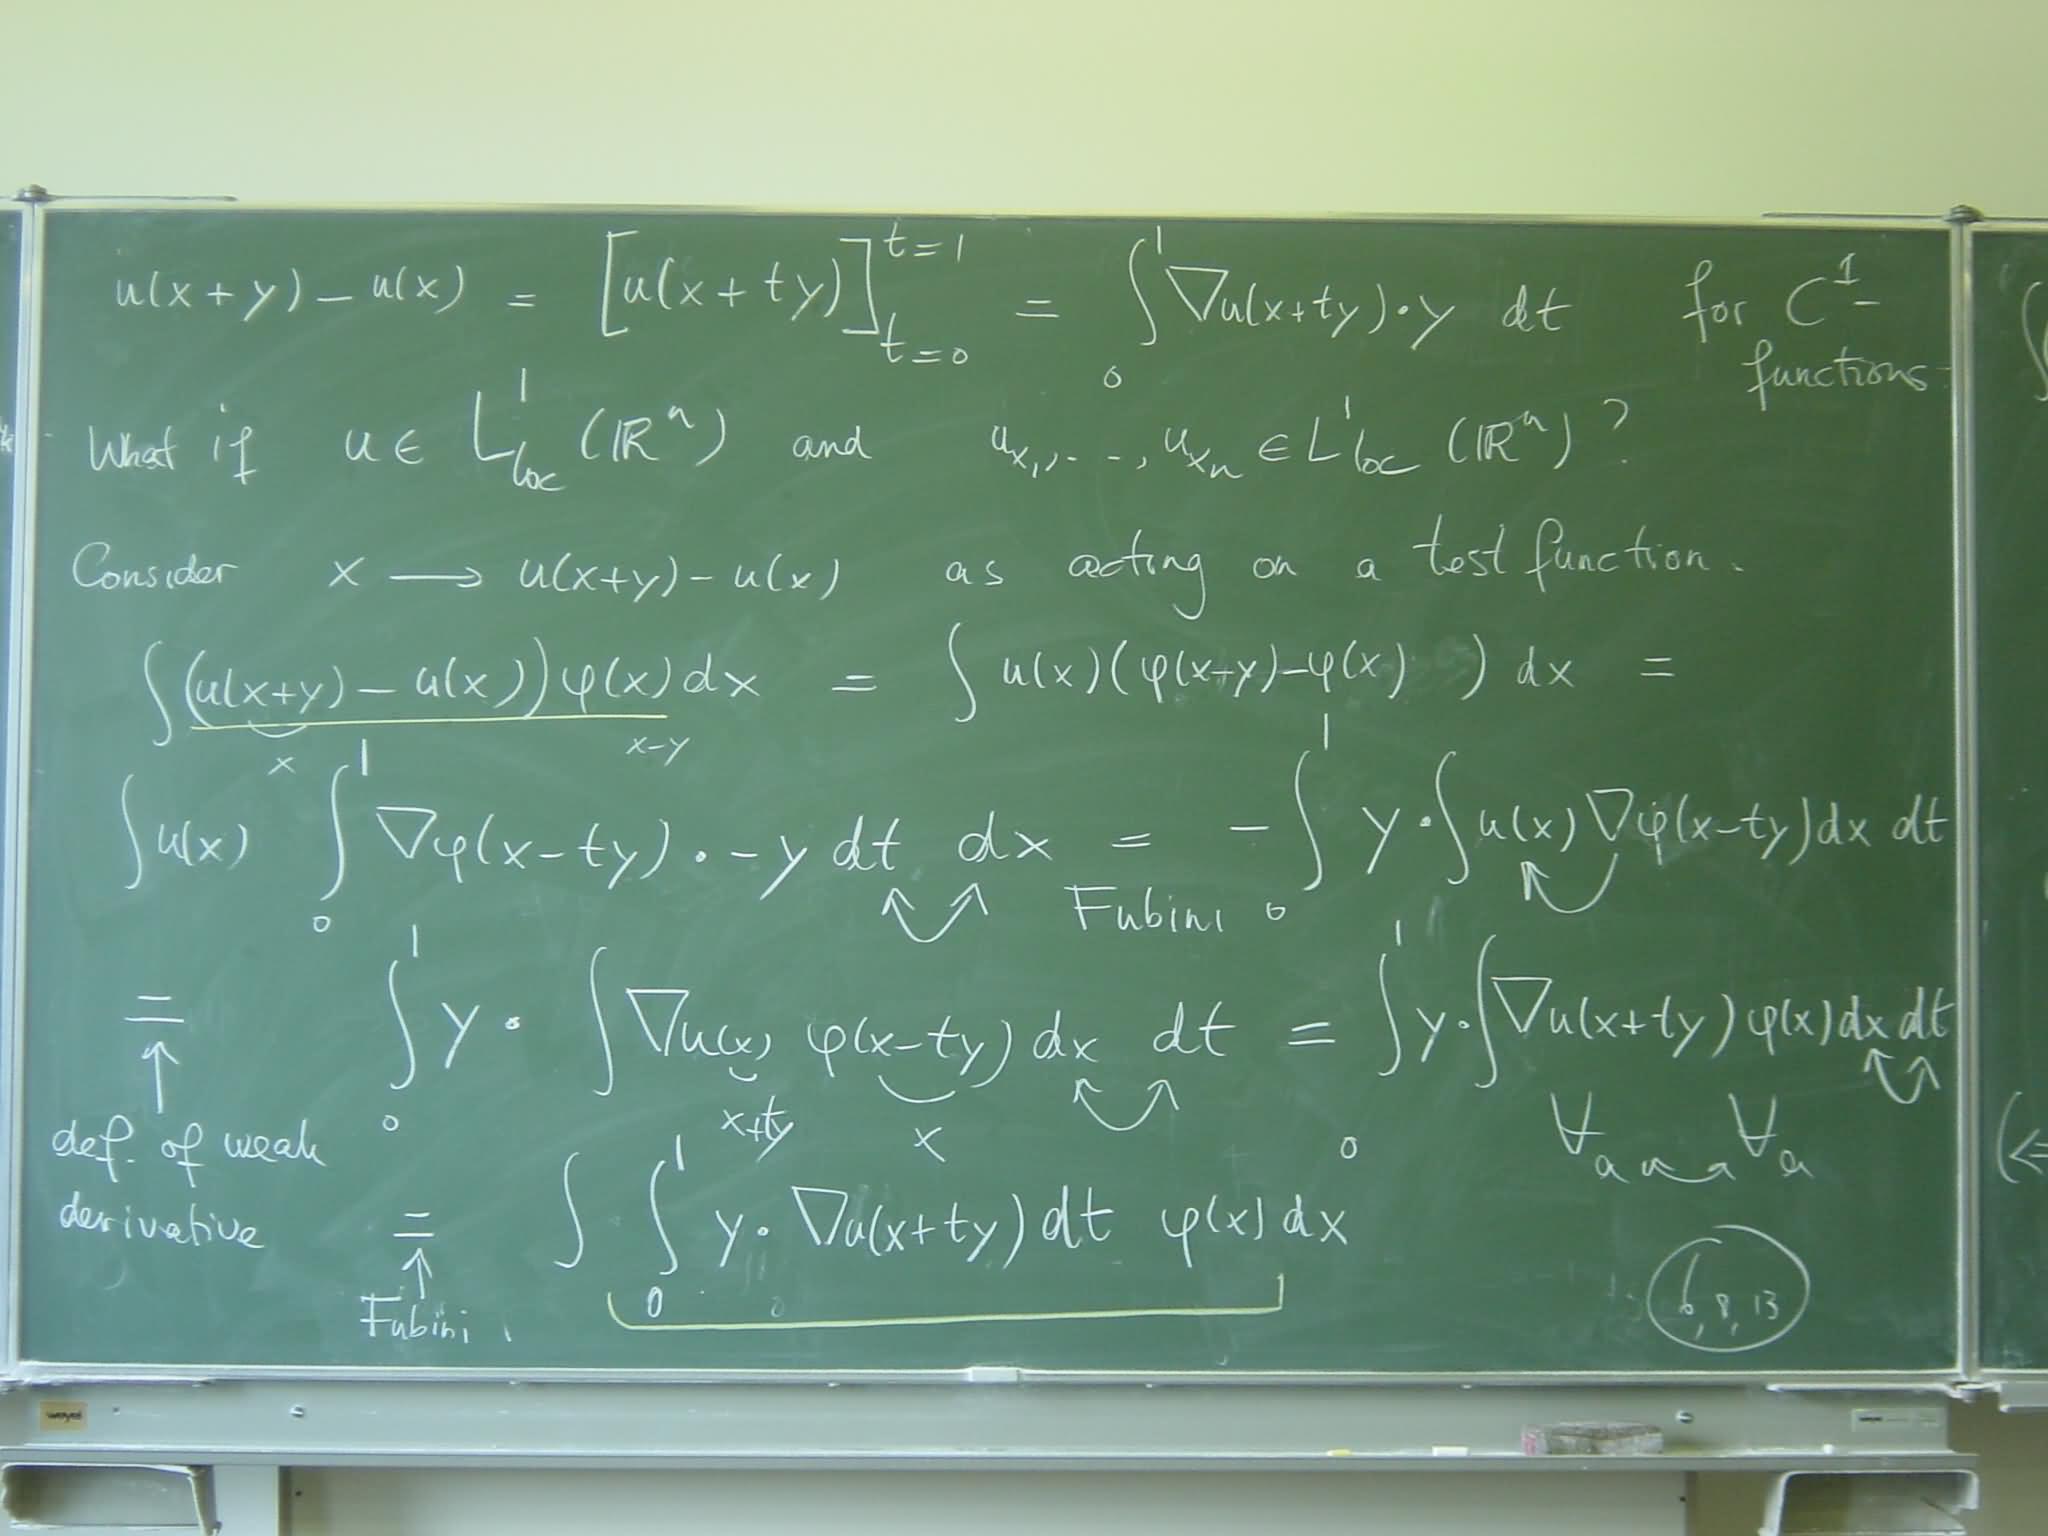 u(x+y) - u(x) = [u(x+ty)]_{t=0}^{t=1} = ∫_0^1 ∇u(x+ty)·y dt for C^1-
functions.
What if u ∈ L^1_loc (ℝ^n) and u_{x_1}, ..., u_{x_n} ∈ L^1_loc (ℝ^n)?
Consider x ⟶ u(x+y) - u(x) as acting on a test function.
∫(u(x+y) - u(x))φ(x)dx = ∫ u(x)(φ(x-y)-φ(x)) dx =
x x-y
∫u(x) ∫_0^1 ∇φ(x-ty)·-y dt dx = -∫_0^1 y·∫u(x)∇φ(x-ty)dx dt
Fubini
= ∫_0^1 y·∫∇u(x) φ(x-ty)dx dt = ∫_0^1 y·∫∇u(x+ty)φ(x)dx dt
x+ty x
↑
def. of weak
derivative
∀a ∀a
= ∫∫_0^1 y·∇u(x+ty)dt φ(x)dx
↑
Fubini.
6, 8, 13